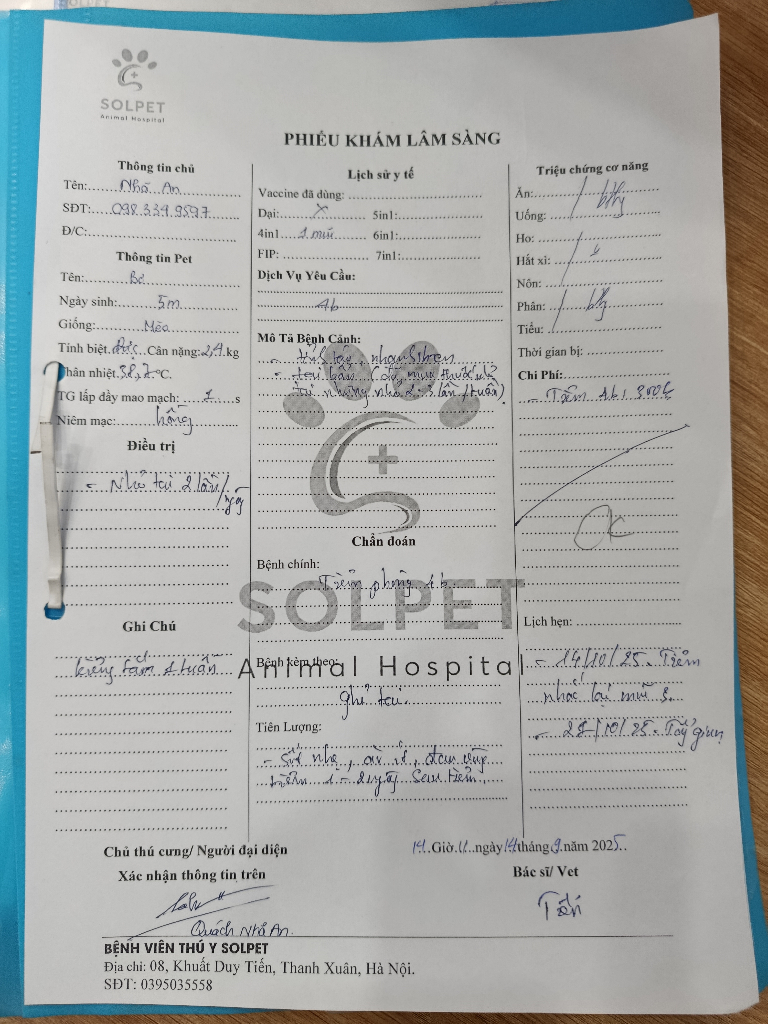 SOLPET
Animal Hospital
PHIẾU KHÁM LÂM SÀNG
Thông tin chủ
Tên: Nhã An
SĐT: 098 334 9597
Đ/C:
Thông tin Pet
Tên: Be
Ngày sinh: 5m
Giống: Mèo
Tính biệt. đực Cân nặng: 2,4 kg
Thân nhiệt 38,7 °C.
TG lấp đầy mao mạch: 1 s
Niêm mạc: hồng
Điều trị
- Nhỏ tai 2 lần/ngày
Ghi Chú
kiêng tắm 1 tuần
Lịch sử y tế
Vaccine đã dùng:
Dại: x 5in1:
4in1 1 mũi 6in1:
FIP: 7in1:
Dịch Vụ Yêu Cầu:
4b
Mô Tả Bệnh Cảnh:
- tỉnh táo, nhanh nhẹn
- tai bẩn (đã mua thuốc nhỏ
tai nhưng nhỏ 2-3 lần/tuần)
Chẩn đoán
Bệnh chính:
Tiêm phòng 4b
SOLPET
Animal Hospital
Bệnh kèm theo:
ghẻ tai.
Tiên Lượng:
- Sốt nhẹ, ăn ít, đau vùng
tiêm 1-2 ngày sau tiêm.
Triệu chứng cơ năng
Ăn: bth
Uống:
Ho:
Hắt xì:
Nôn:
Phân: bt
Tiểu:
Thời gian bị:
Chi Phí:
- Tiêm 4b: 300k
OK
Lịch hẹn:
- 14/10/25. Tiêm
nhắc lại mũi 3.
- 28/10/25. Tẩy giun
Chủ thú cưng/ Người đại diện
Xác nhận thông tin trên
Quách Nhã An.
14 Giờ 11 ngày 14 tháng 9 năm 2025
Bác sĩ/ Vet
Tiến
BỆNH VIÊN THÚ Y SOLPET
Địa chỉ: 08, Khuất Duy Tiến, Thanh Xuân, Hà Nội.
SĐT: 0395035558